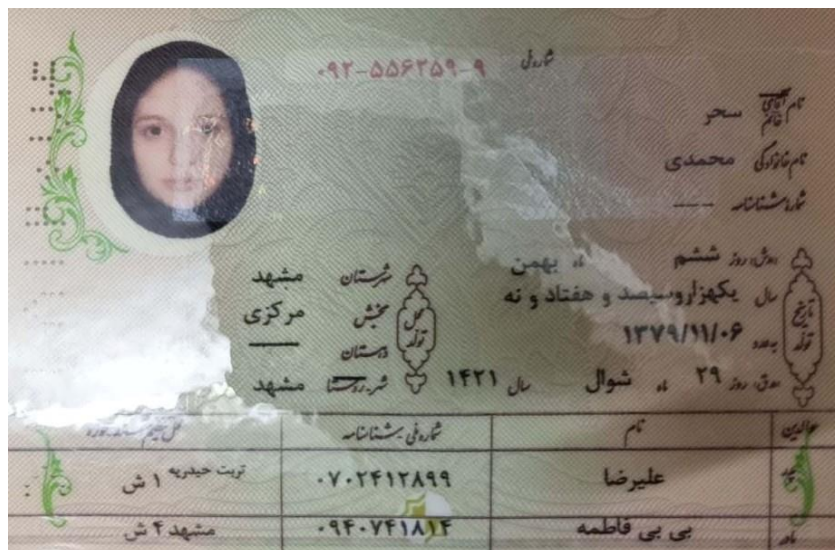 شماره ملی ۰۹۲-۵۵۶۲۵۹-۹
نام آقای خانم سحر
نام خانوادگی محمدی
شماره شناسنامه ----
تاریخ تولد
روز ششم ماه بهمن
سال یکهزار و سیصد و هفتاد و نه
۱۳۷۹/۱۱/۰۶
روز ۲۹ ماه شوال سال ۱۴۲۱
محل تولد
شهرستان مشهد
بخش مرکزی
دهستان ——
شهر-روستا مشهد
والدین نام شماره ملی / شناسنامه
پدر علیرضا ۰۷۰۲۴۱۲۸۹۹ تربت حیدریه ۱ ش
مادر بی بی فاطمه ۰۹۴۰۷۴۱۸۱۴ مشهد ۴ ش